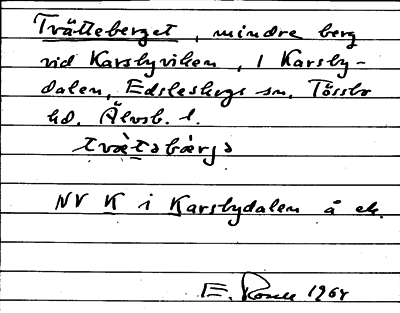 Tvätteberget, mindre berg
vid Karsbyviken, i Karsby-
dalen, Edsleskogs sn. Tössbo
hd. Älvsb. l.
tvæ̀təbærjə
NV K i Karsbydalen å ek.
E. 1964